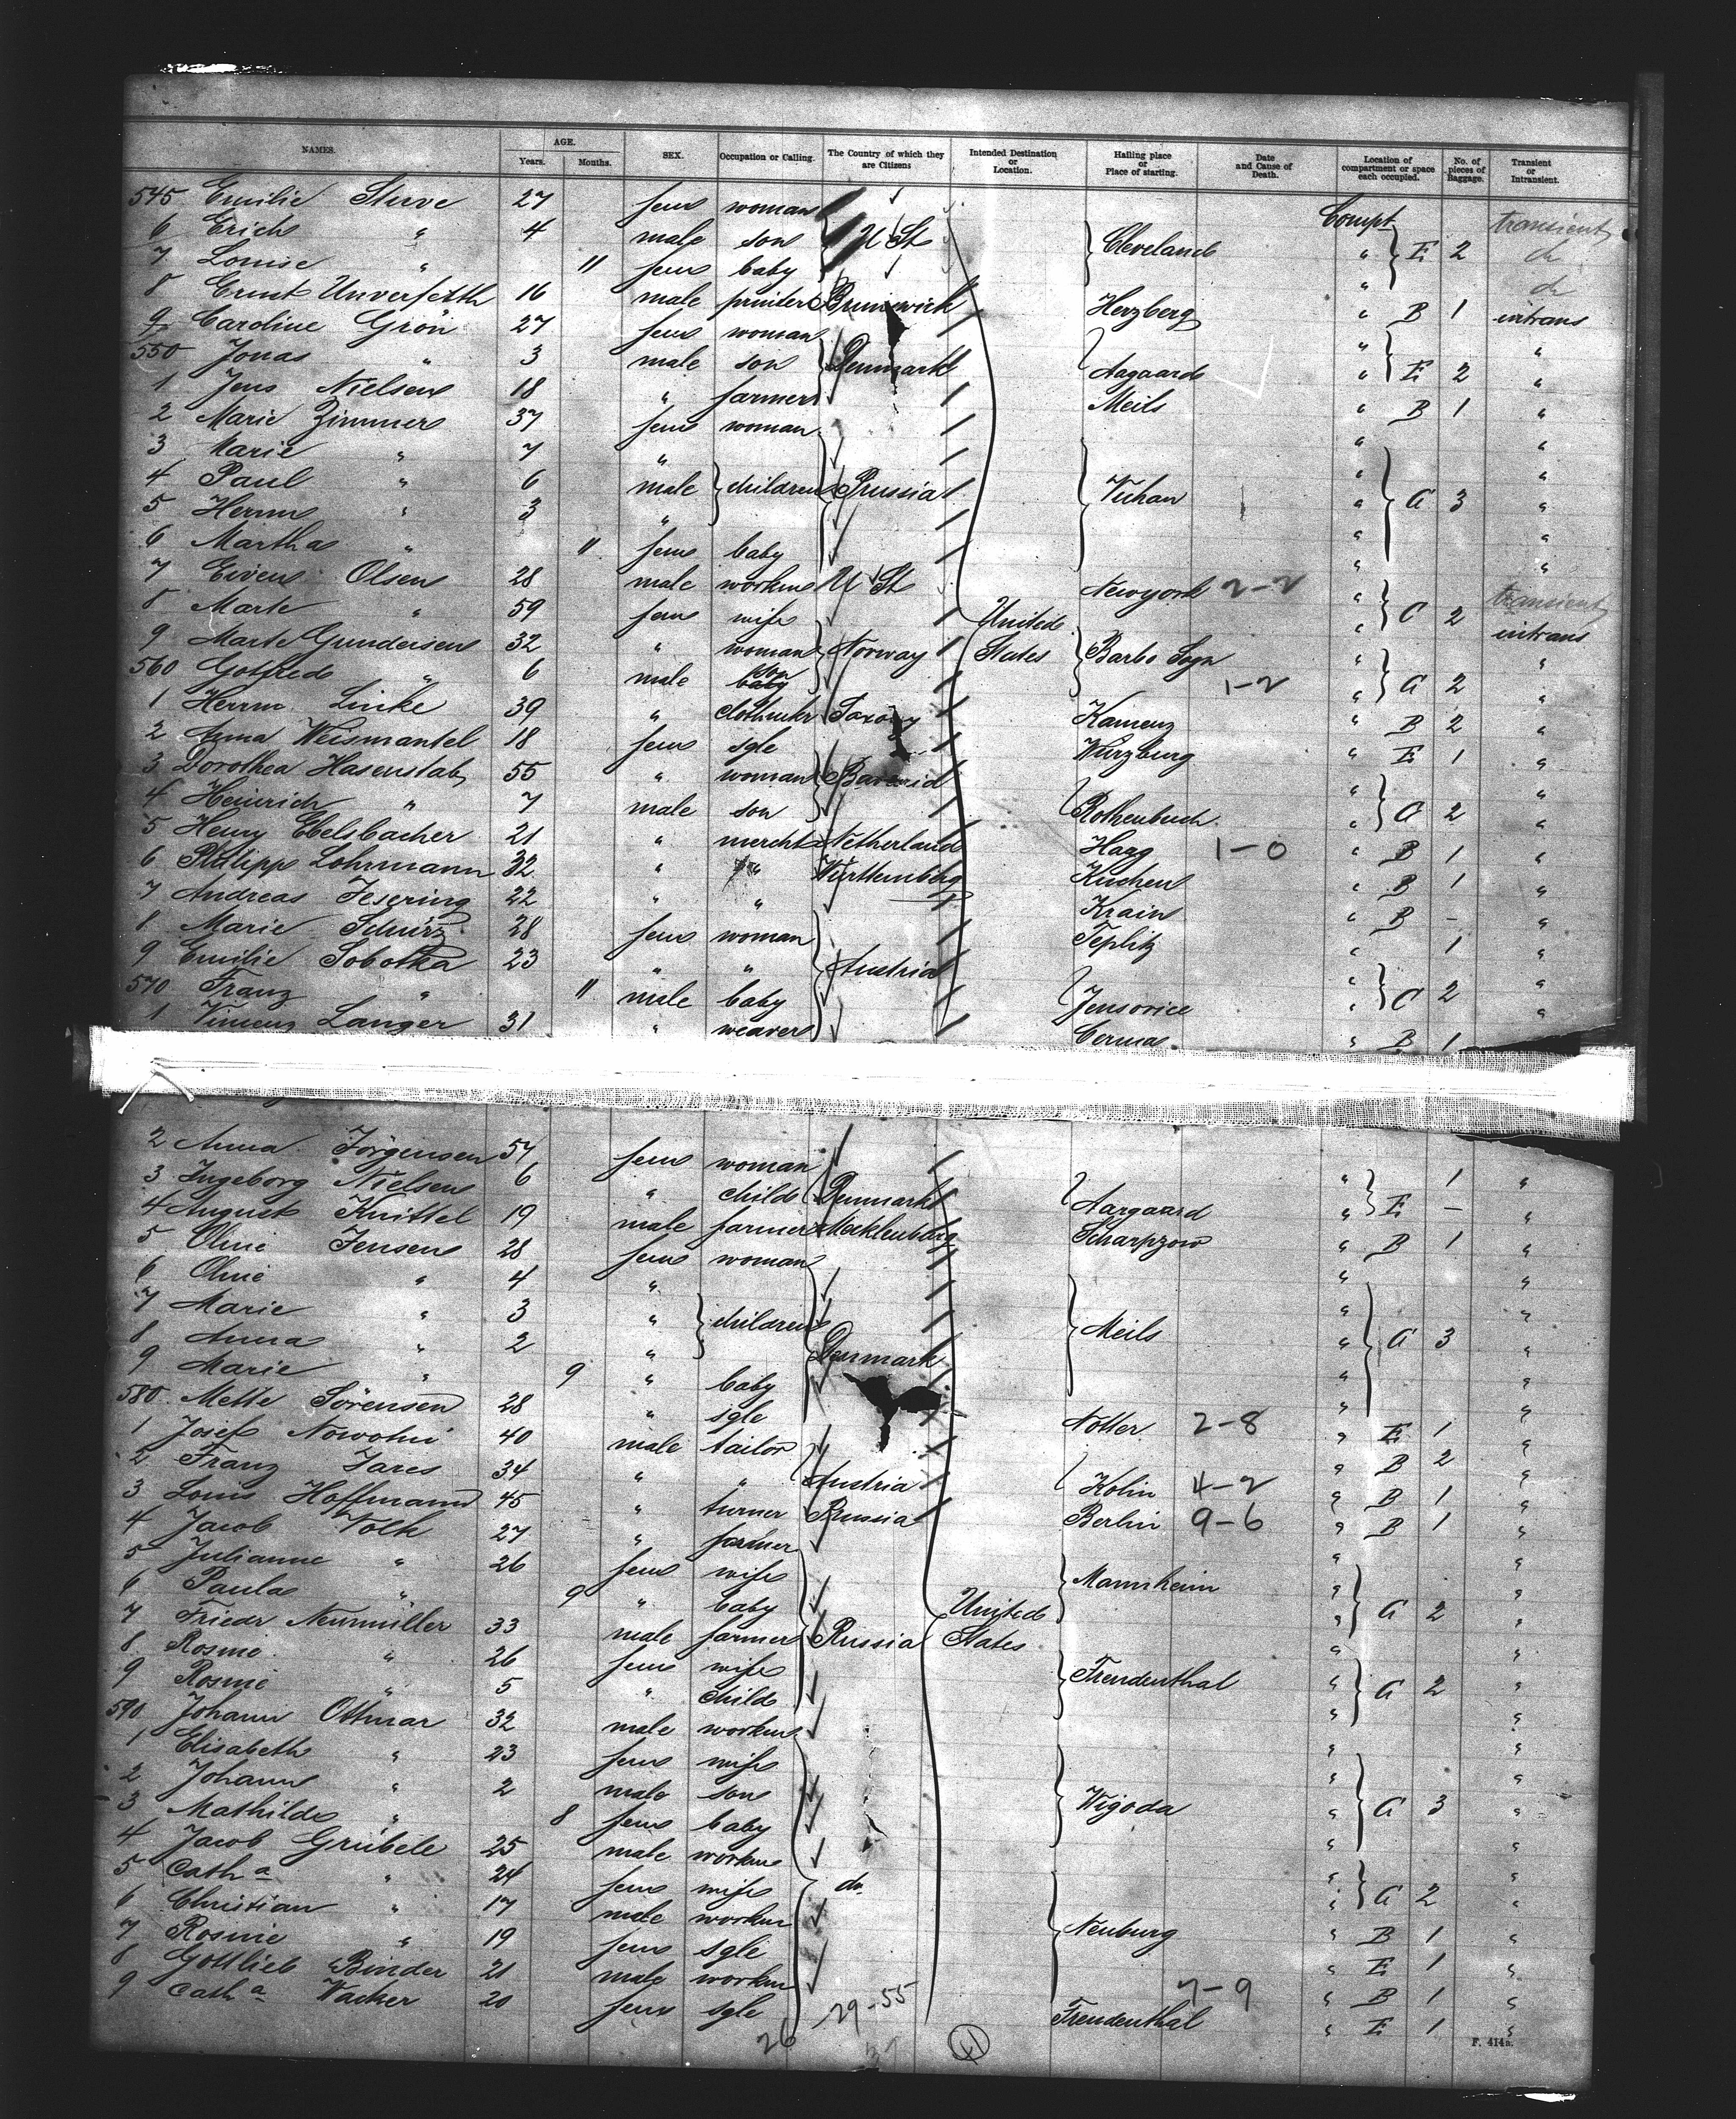 NAMES. AGE. Years. Months. SEX. Occupation or Calling. The Country of which they are Citizens Intended Destination or Location. Hailing place or Place of starting. Date and Cause of Death. Location of compartment or space each occupied. No. of pieces of Baggage. Transient or Intransient.
545 Emilie Stuve 27 fem woman Compt transient
6 Erich " 4 male son U St Cleveland " E 2 do
7 Louise " 11 fem baby " do
8 Ernst Unverfehrth 16 male printer Brunswick Herzberg " B 1 intrans
9 Caroline Grön 27 fem woman " "
550 Jonas " 3 male son Denmark Aagaard " E 2 "
1 Jens Nielsen 18 " farmer Meils " B 1 "
2 Marie Zimmer 37 fem woman " "
3 Marie " 7 " " "
4 Paul " 6 male children Prussia Vichan " A 3 "
5 Herm " 3 " " "
6 Martha " 11 fem baby " "
7 Eiven Olsen 28 male workm U St Newyork 2-2 " transient
8 Marte " 59 fem wife United " C 2 intrans
9 Marte Gundersen 32 " woman Norway States Barbo Sogn " "
560 Gotfred " 6 male son baby 1-2 " A 2 "
1 Herrm Linke 39 " clothmkr Saxony Kamenz " B 2 "
2 Anna Weismantel 18 fem sgle Würzburg " E 1 "
3 Dorothea Hasenstab 55 " woman Bavaria " "
4 Heinrich " 7 male son Rothenbuch " A 2 "
5 Henry Ebelsbacher 21 " mercht Netherland Haag 1-0 " B 1 "
6 Philipp Lohrmann 32 " " Württemberg Kuchen " B 1 "
7 Andreas Jesering 22 " " Krain " B - "
8 Marie Schürz 28 fem woman Teplitz " 1 "
9 Emilie Sobotka 23 " " Austria " "
570 Franz " 11 male baby Jensovice " C 2 "
1 Vincenz Langer 31 " weaver Cerma " B 1
2 Anna Jörgensen 57 fem woman " 1 "
3 Ingeborg Nielsen 6 " child Denmark Aargaard " E - "
4 August Knittel 19 male farmer Mecklenburg Scharpzow " B 1 "
5 Oline Jensen 28 fem woman " "
6 Oline " 4 " " "
7 Marie " 3 " children Meils " A 3 "
8 Anna " 2 " Denmark " "
9 Marie " 9 " baby " "
580 Mette Sörensen 28 " sgle Notter 2-8 " E 1 "
1 Josef Nowotni 40 male tailor " B 2 "
2 Franz Jares 34 " " Austria Kolin 4-2 " B 1 "
3 Louis Hoffmann 45 " turner Prussia Berlin 9-6 " B 1 "
4 Jacob Volk 27 " farmer " "
5 Julianne " 26 fem wife Mannheim " "
6 Paula " 9 " baby United " A 2 "
7 Friedr Neumüller 33 male farmer Russia States " "
8 Rosine " 26 fem wife Freudenthal " A 2 "
9 Rosine " 5 " child " "
590 Johann Ottmar 32 male workm " "
1 Elisabeth " 23 fem wife " "
2 Johann " 2 male son Wigoda " A 3 "
3 Mathilde " 8 fem baby " "
4 Jacob Grübele 25 male workm " "
5 Cath a " 24 fem wife do " A 2 "
6 Christian " 17 male workm Neuburg " B 1 "
7 Rosine " 19 fem sgle " E 1 "
8 Gottlieb Binder 21 male workm 7-9 " B 1 "
9 Cath a Wacker 20 fem sgle 29-55 Freudenthal " E 1 "
26
F. 414a.